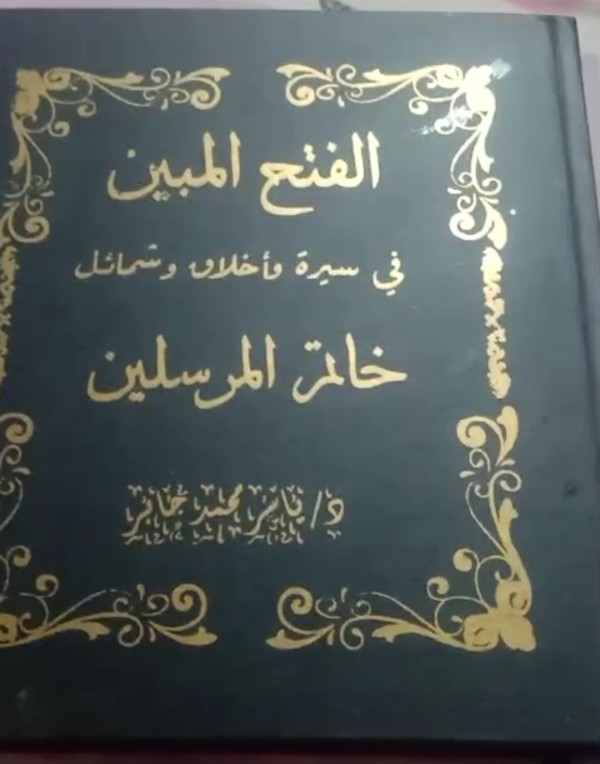 الفتح المبين
في سيرة وأخلاق وشمائل
خاتم المرسلين
د/ ياسر محمد جابر